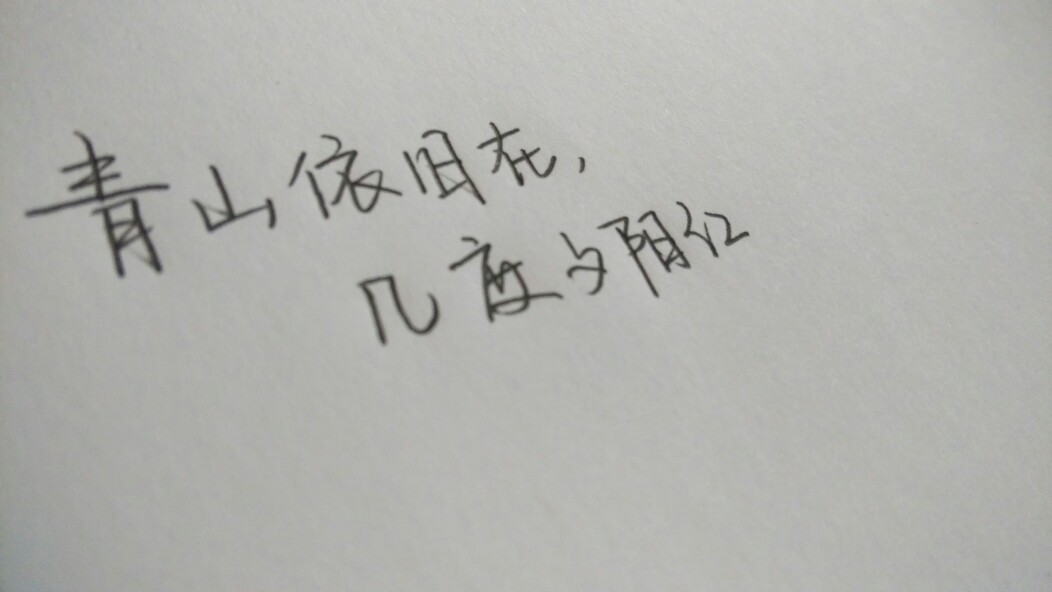 青山依旧在,
几度夕阳红